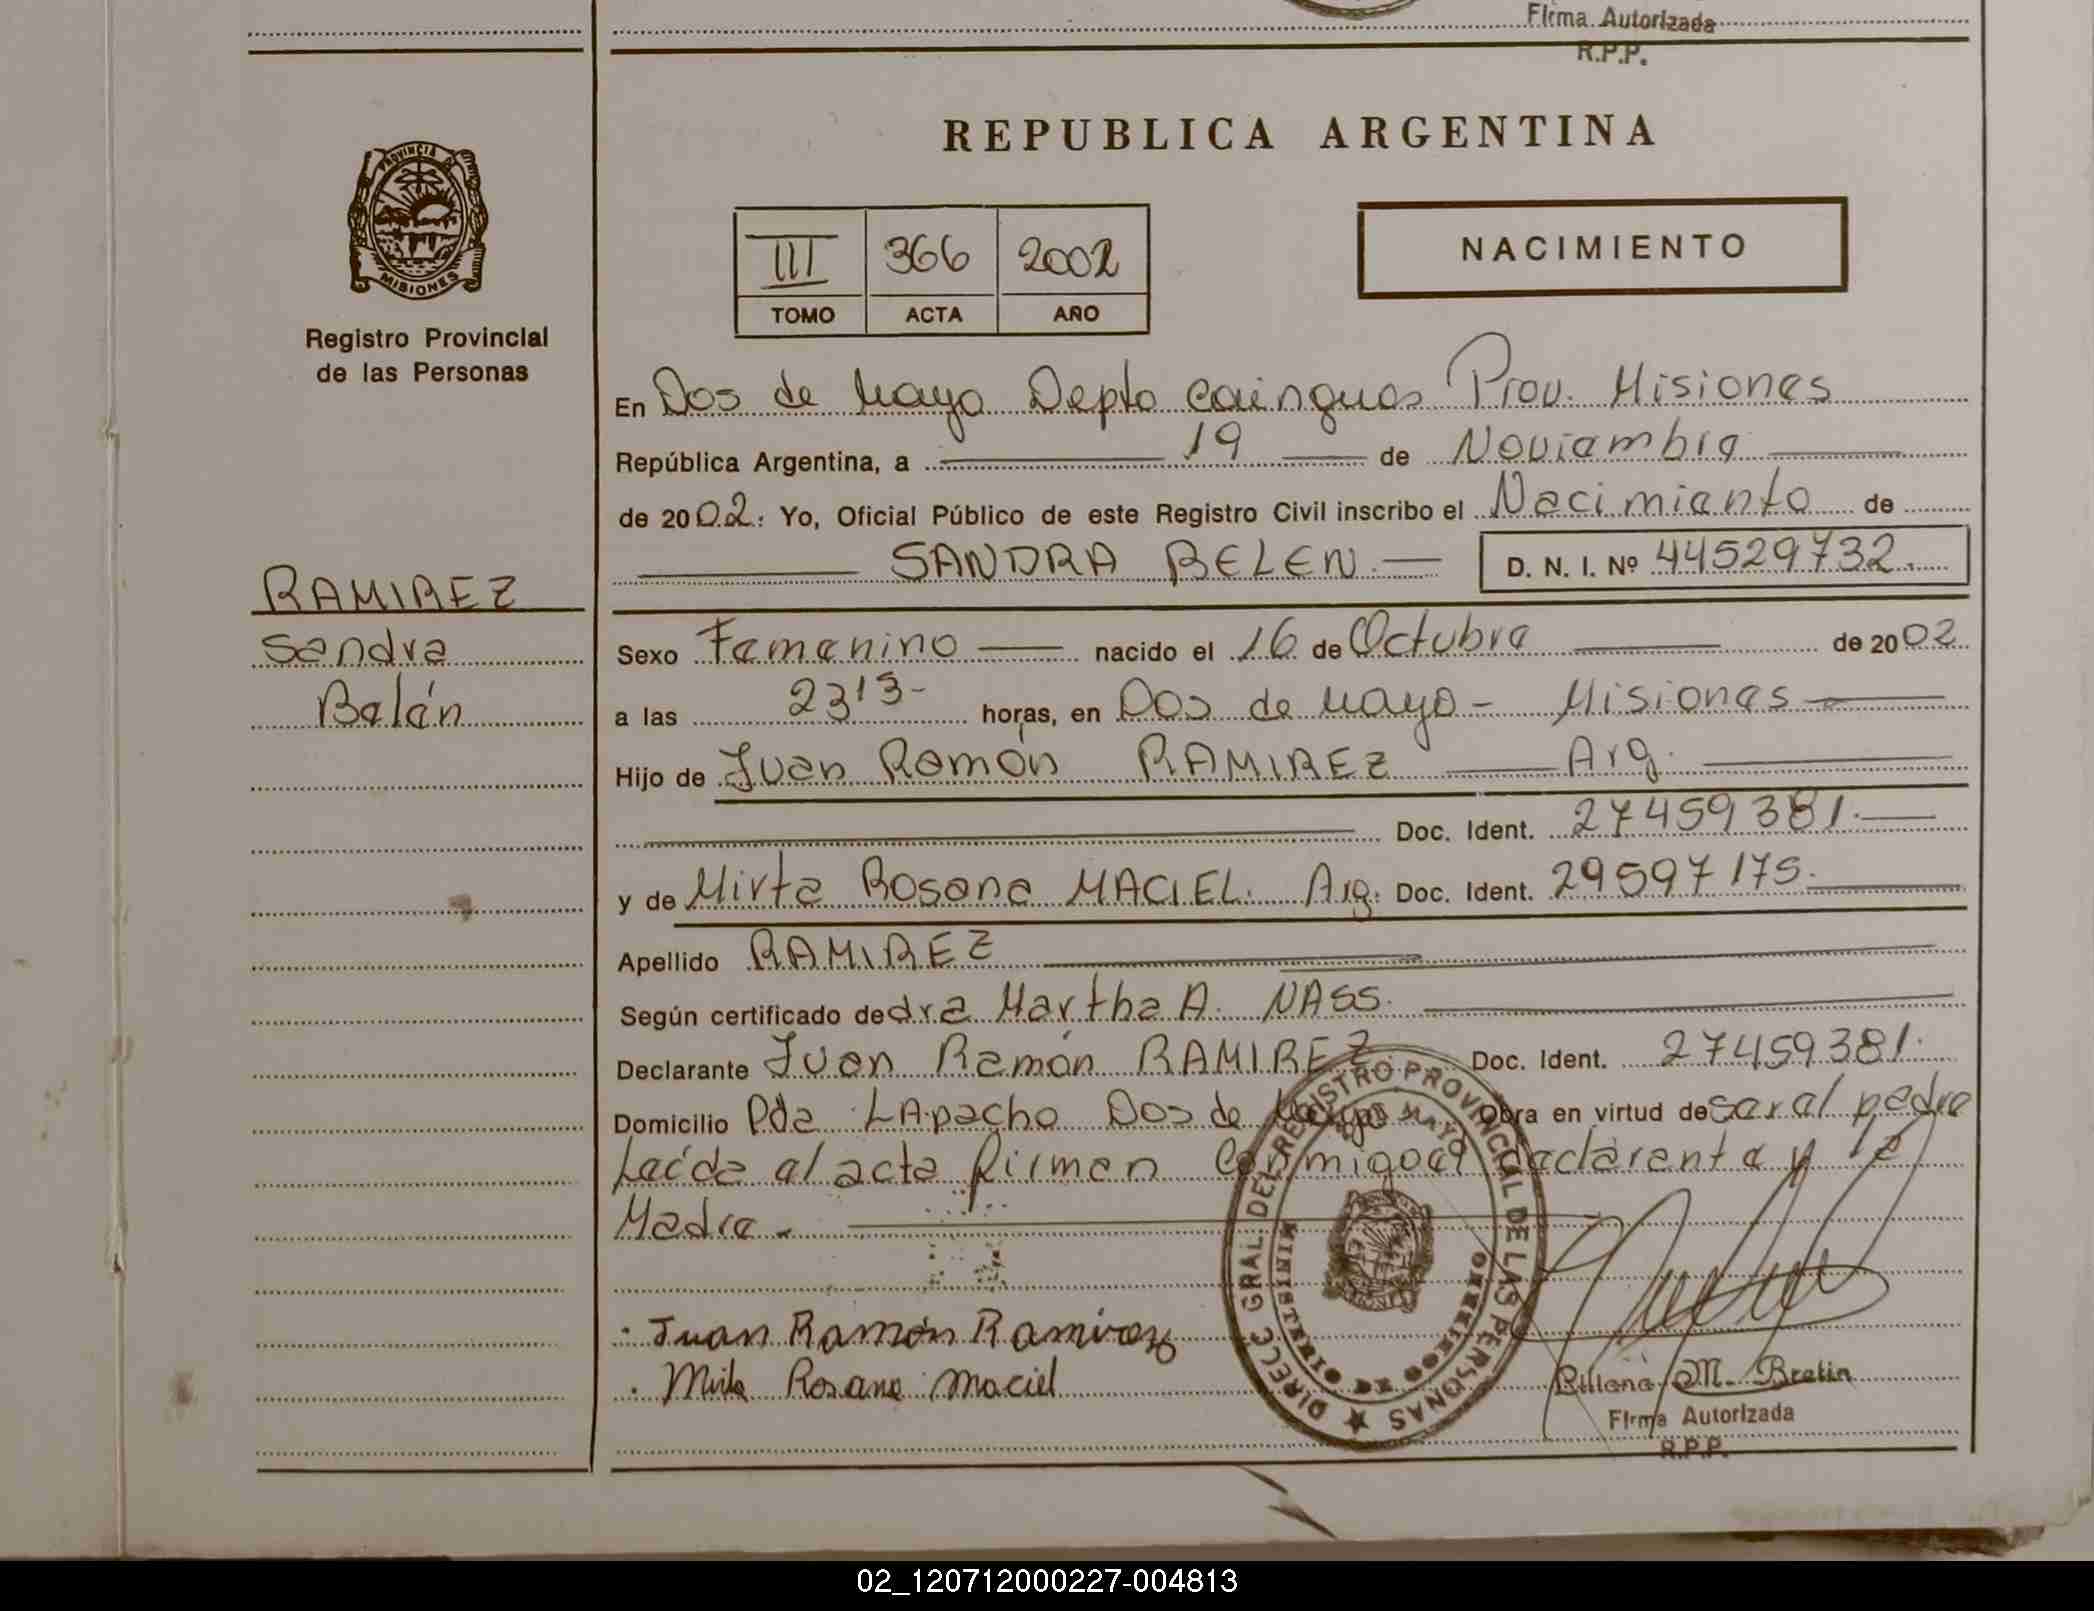 Firma Autorizada
R.P.P.
REPUBLICA ARGENTINA
PROVINCIA DE
MISIONES
Registro Provincial
de las Personas
III 366 2002
TOMO ACTA AÑO
NACIMIENTO
En Dos de Mayo Depto Cainguas Prov. Misiones
República Argentina, a 19 de Noviembre
de 2002. Yo, Oficial Público de este Registro Civil inscribo el Nacimiento de
SANDRA BELEN D. N. I. Nº 44529732.
RAMIREZ
Sandra
Belén
Sexo Femenino nacido el 16 de Octubre de 2002
a las 23 13 horas, en Dos de Mayo - Misiones
Hijo de Juan Ramón RAMIREZ Arg.
Doc. Ident. 27459381.
y de Mirta Rosana MACIEL. Arg. Doc. Ident. 29597175.
Apellido RAMIREZ
Según certificado de dra Martha A. NASS.
Declarante Juan Ramón RAMIREZ Doc. Ident. 27459381.
Domicilio Pda LApacho Dos de Mayo Obra en virtud de ser el padre
Leída el acta firman conmigo el declarante y la
Madre.
Juan Ramón Ramirez
Mirta Rosana Maciel
DIRECC GRAL. DEL REGISTRO PROVINCIAL DE LAS PERSONAS
MINISTERIO DE GOBIERNO
DOS DE MAYO
M. Bretin
Firma Autorizada
R.P.P.
02_120712000227-004813